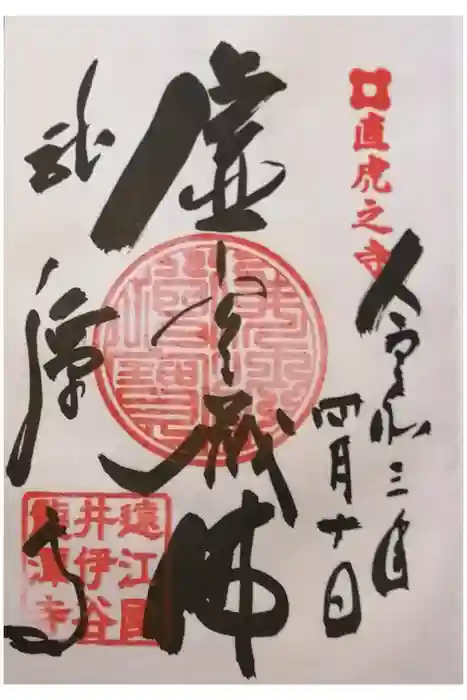 直虎之寺
令和三年
四月十日
虚空蔵佛
龍潭寺
佛法僧寶
遠江國
井伊谷
龍潭寺